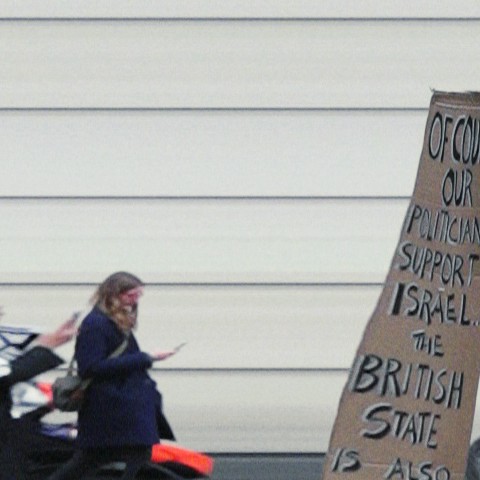 OF COU
OUR
POLITICIAN
SUPPORT
ISRAEL..
THE
BRITISH
STATE
IS ALSO